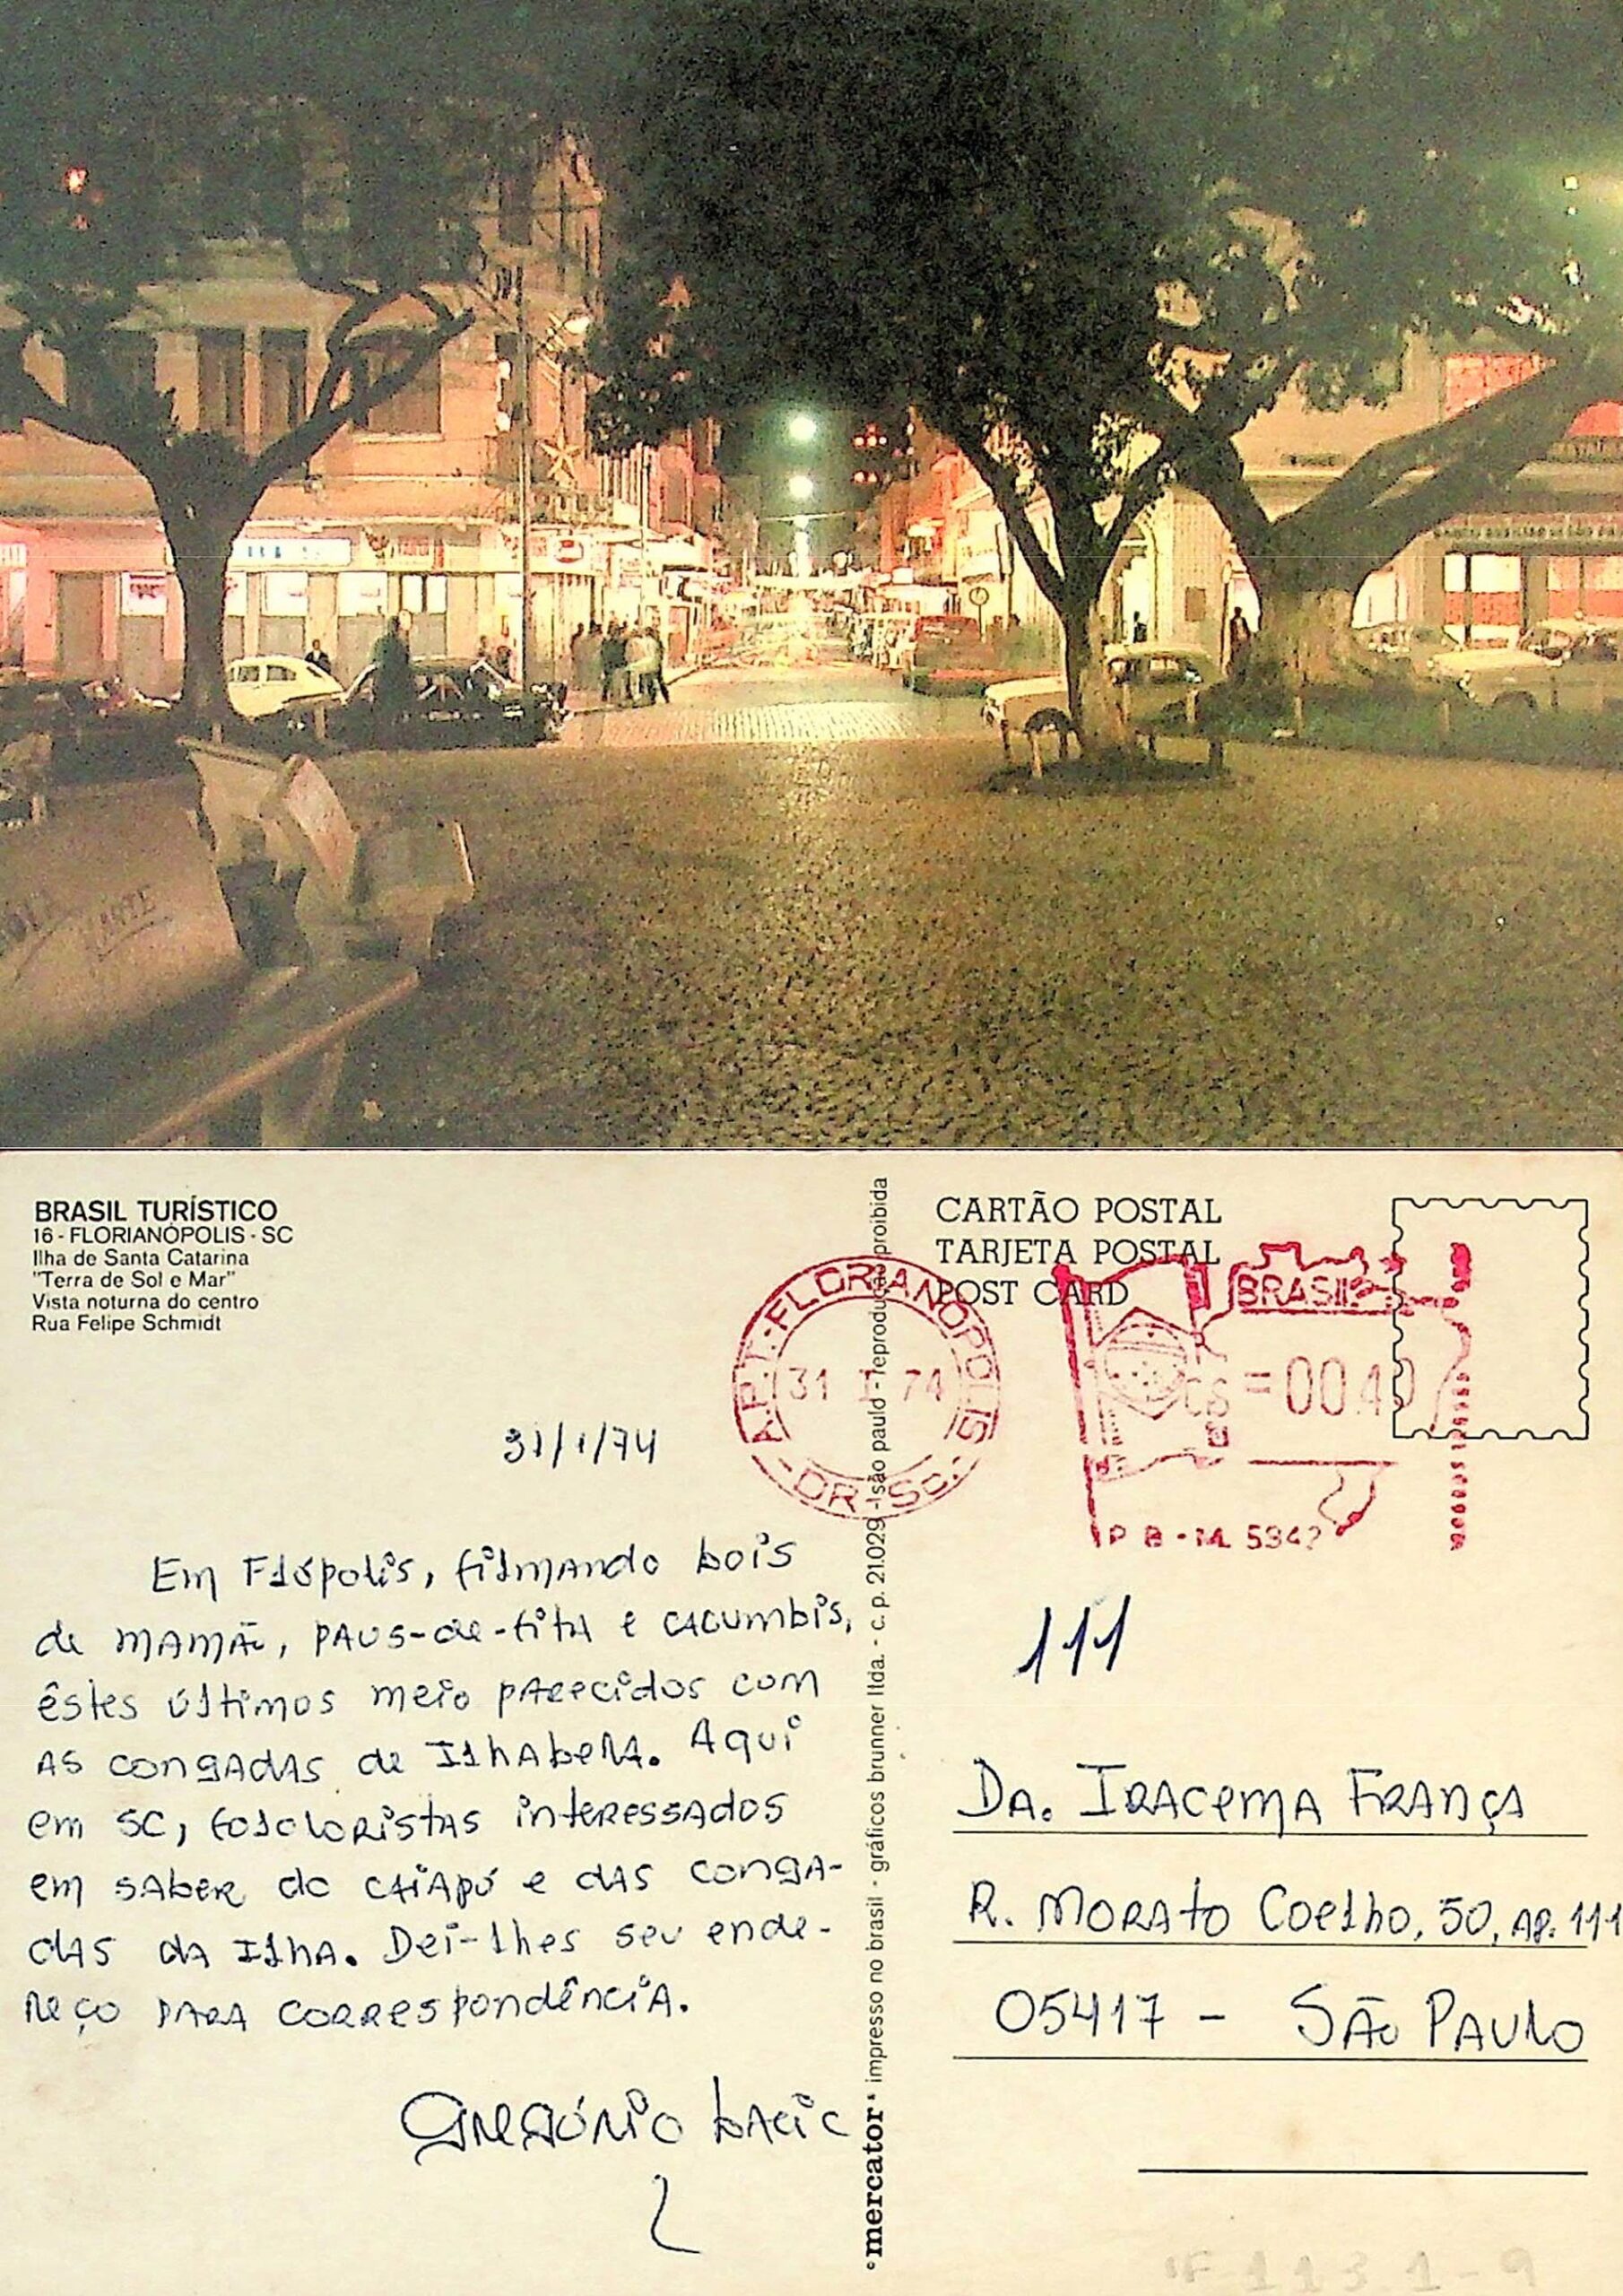 BRASIL TURÍSTICO
16 - FLORIANÓPOLIS - SC
Ilha de Santa Catarina
"Terra de Sol e Mar"
Vista noturna do centro
Rua Felipe Schmidt
31/1/74
Em Flópolis, filmando bois
de mamão, paus-de-fita e cacumbis,
êstes últimos meio parecidos com
as congadas de Ilhabela. Aqui
em SC, folcloristas interessados
em saber do caiapó e das conga-
das da Ilha. Dei-lhes seu ende-
reço para correspondência.
Gregório
mercator impresso no brasil - gráficos brunner ltda. - c. p. 21.029 - são paulo - reprodução proibida
CARTÃO POSTAL
TARJETA POSTAL
POST CARD
FLORIANOPOLIS
31 I 74
DR - SC
BRASIL
=0040
111
Da. Iracema França
R. Morato Coelho, 50, ap. 111
05417 - São Paulo